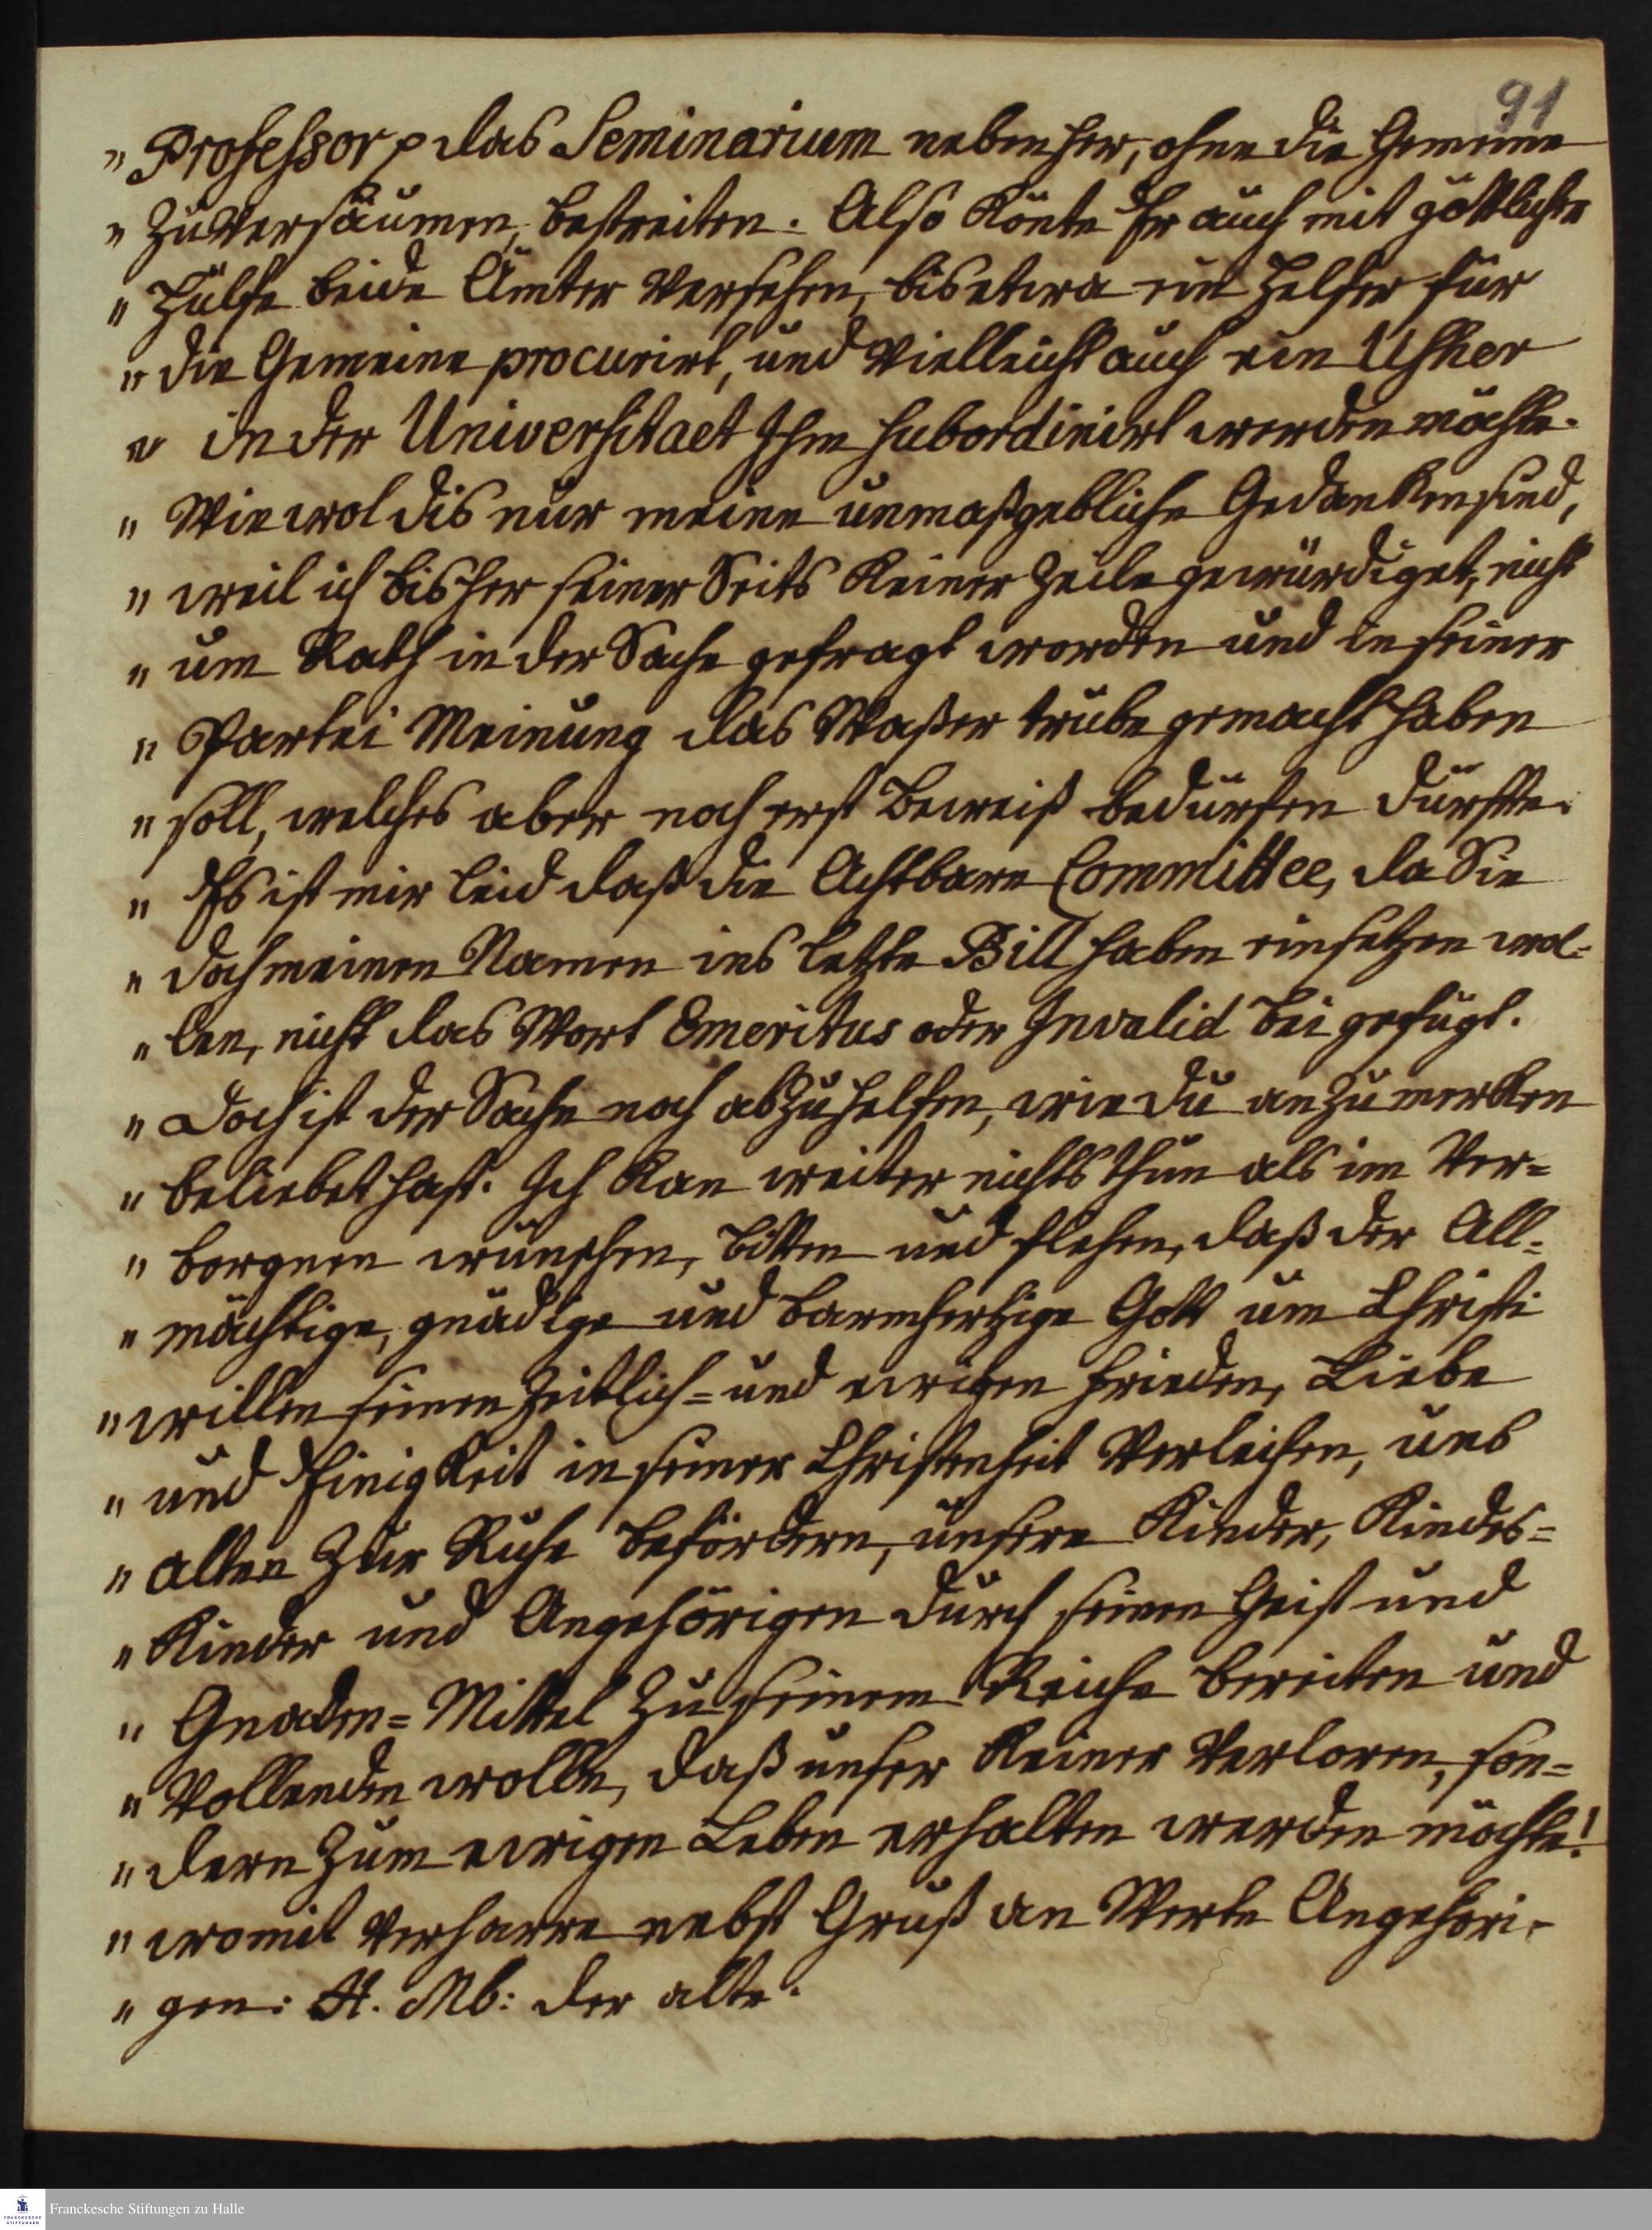 91
„ Professor p das Seminarium nebenher, ohne die Gemeine
„ zu versäumen, bestreiten. Also könte Er auch mit göttlicher
„ Hülfe beide Ämter versehen, bis etwa ein Helfer für
„ die Gemeine procurirt, und vielleicht auch ein Usher
„ in der Universitaet Ihm subordinirt werden möchte.
„ Wiewol dis nur meine unmaßgebliche Gedanken sind,
„ weil ich bisher seiner Seits keiner Zeile gewürdiget, nicht
„ um Rath in der Sache gefragt worden und in seiner
„ Partei Meinung das Waßer trübe gemacht haben
„ soll, welches aber noch erst Beweiß bedürfen dürfte.
„ Es ist mir leid daß die Achtbare Committee, da Sie
„ doch meinen Namen ins letzte Bill haben einsetzen wol-
„ len, nicht das Wort Emeritus oder Invalid bei gefügt.
„ Doch ist der Sache noch abzuhelfen, wie du anzumerken
„ beliebet hast. Ich kan weiter nichts thun als im Ver=
„ borgnen wünschen, bitten und flehen, daß der All=
„ mächtige, gnädige und barmhertzige Gott um Christi
„ willen seinen Zeitlich= und ewigen Frieden, Liebe
„ und Einigkeit in seiner Christenheit verleihen, uns
„ alten zur Ruhe befördern, unsere Kinder, Kindes=
„ Kinder und Angehörigen durch seinen Geist und
„ Gnaden=Mittel zu seinem Reiche bereiten und
„ vollenden wolle, daß unser keiner verloren, son=
„ dern zum ewigen Leben erhalten werden möchte!
„ womit verharre nebst Gruß an Werte Angehöri-
„ gen. H. Mb: der alte.
Franckesche Stiftungen zu Halle